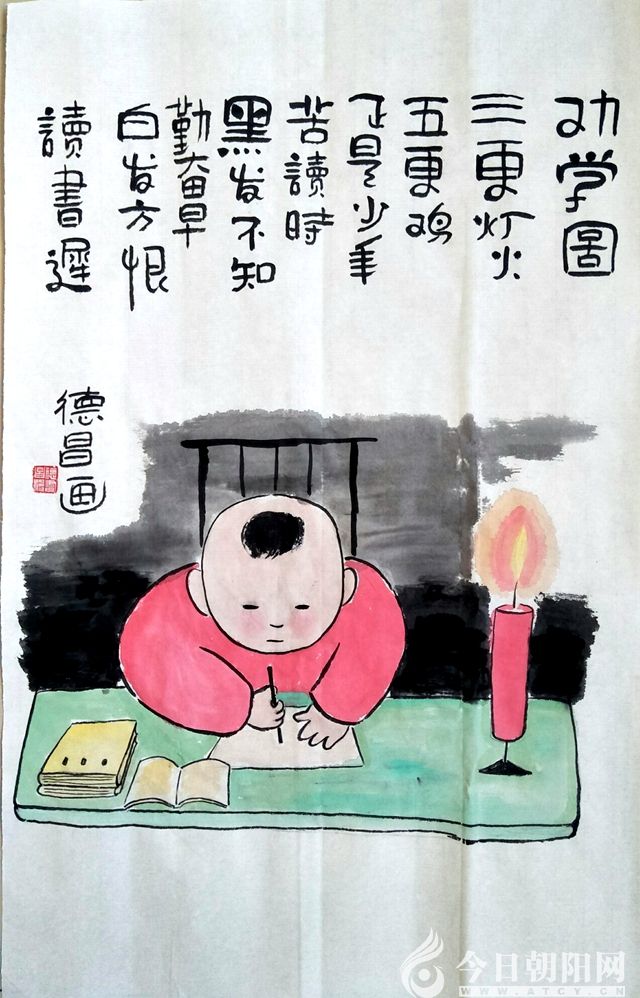 劝学圖
三更灯火
五更鸡
正是少年
苦讀時
黑发不知
勤奋早
白发方恨
讀書遲
德昌画
今日朝阳网
WWW.ATCY.CN